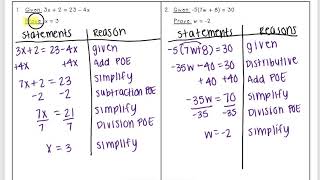 1. Given: 3x + 2 = 23 - 4x
Prove: x = 3
statements reasons
3x+2 = 23-4x given
+4x +4x add POE
7x+2 = 23 simplify
-2 -2 subtraction POE
7x = 21 simplify
7 7 Division POE
x = 3 simplify
2. Given: -5(7w + 8) = 30
Prove: w = -2
statements Reasons
-5(7w+8) = 30 given
-35w - 40 = 30 Distributive
+40 +40 add POE
-35w = 70 simplify
-35 -35 Division POE
w = -2 simplify